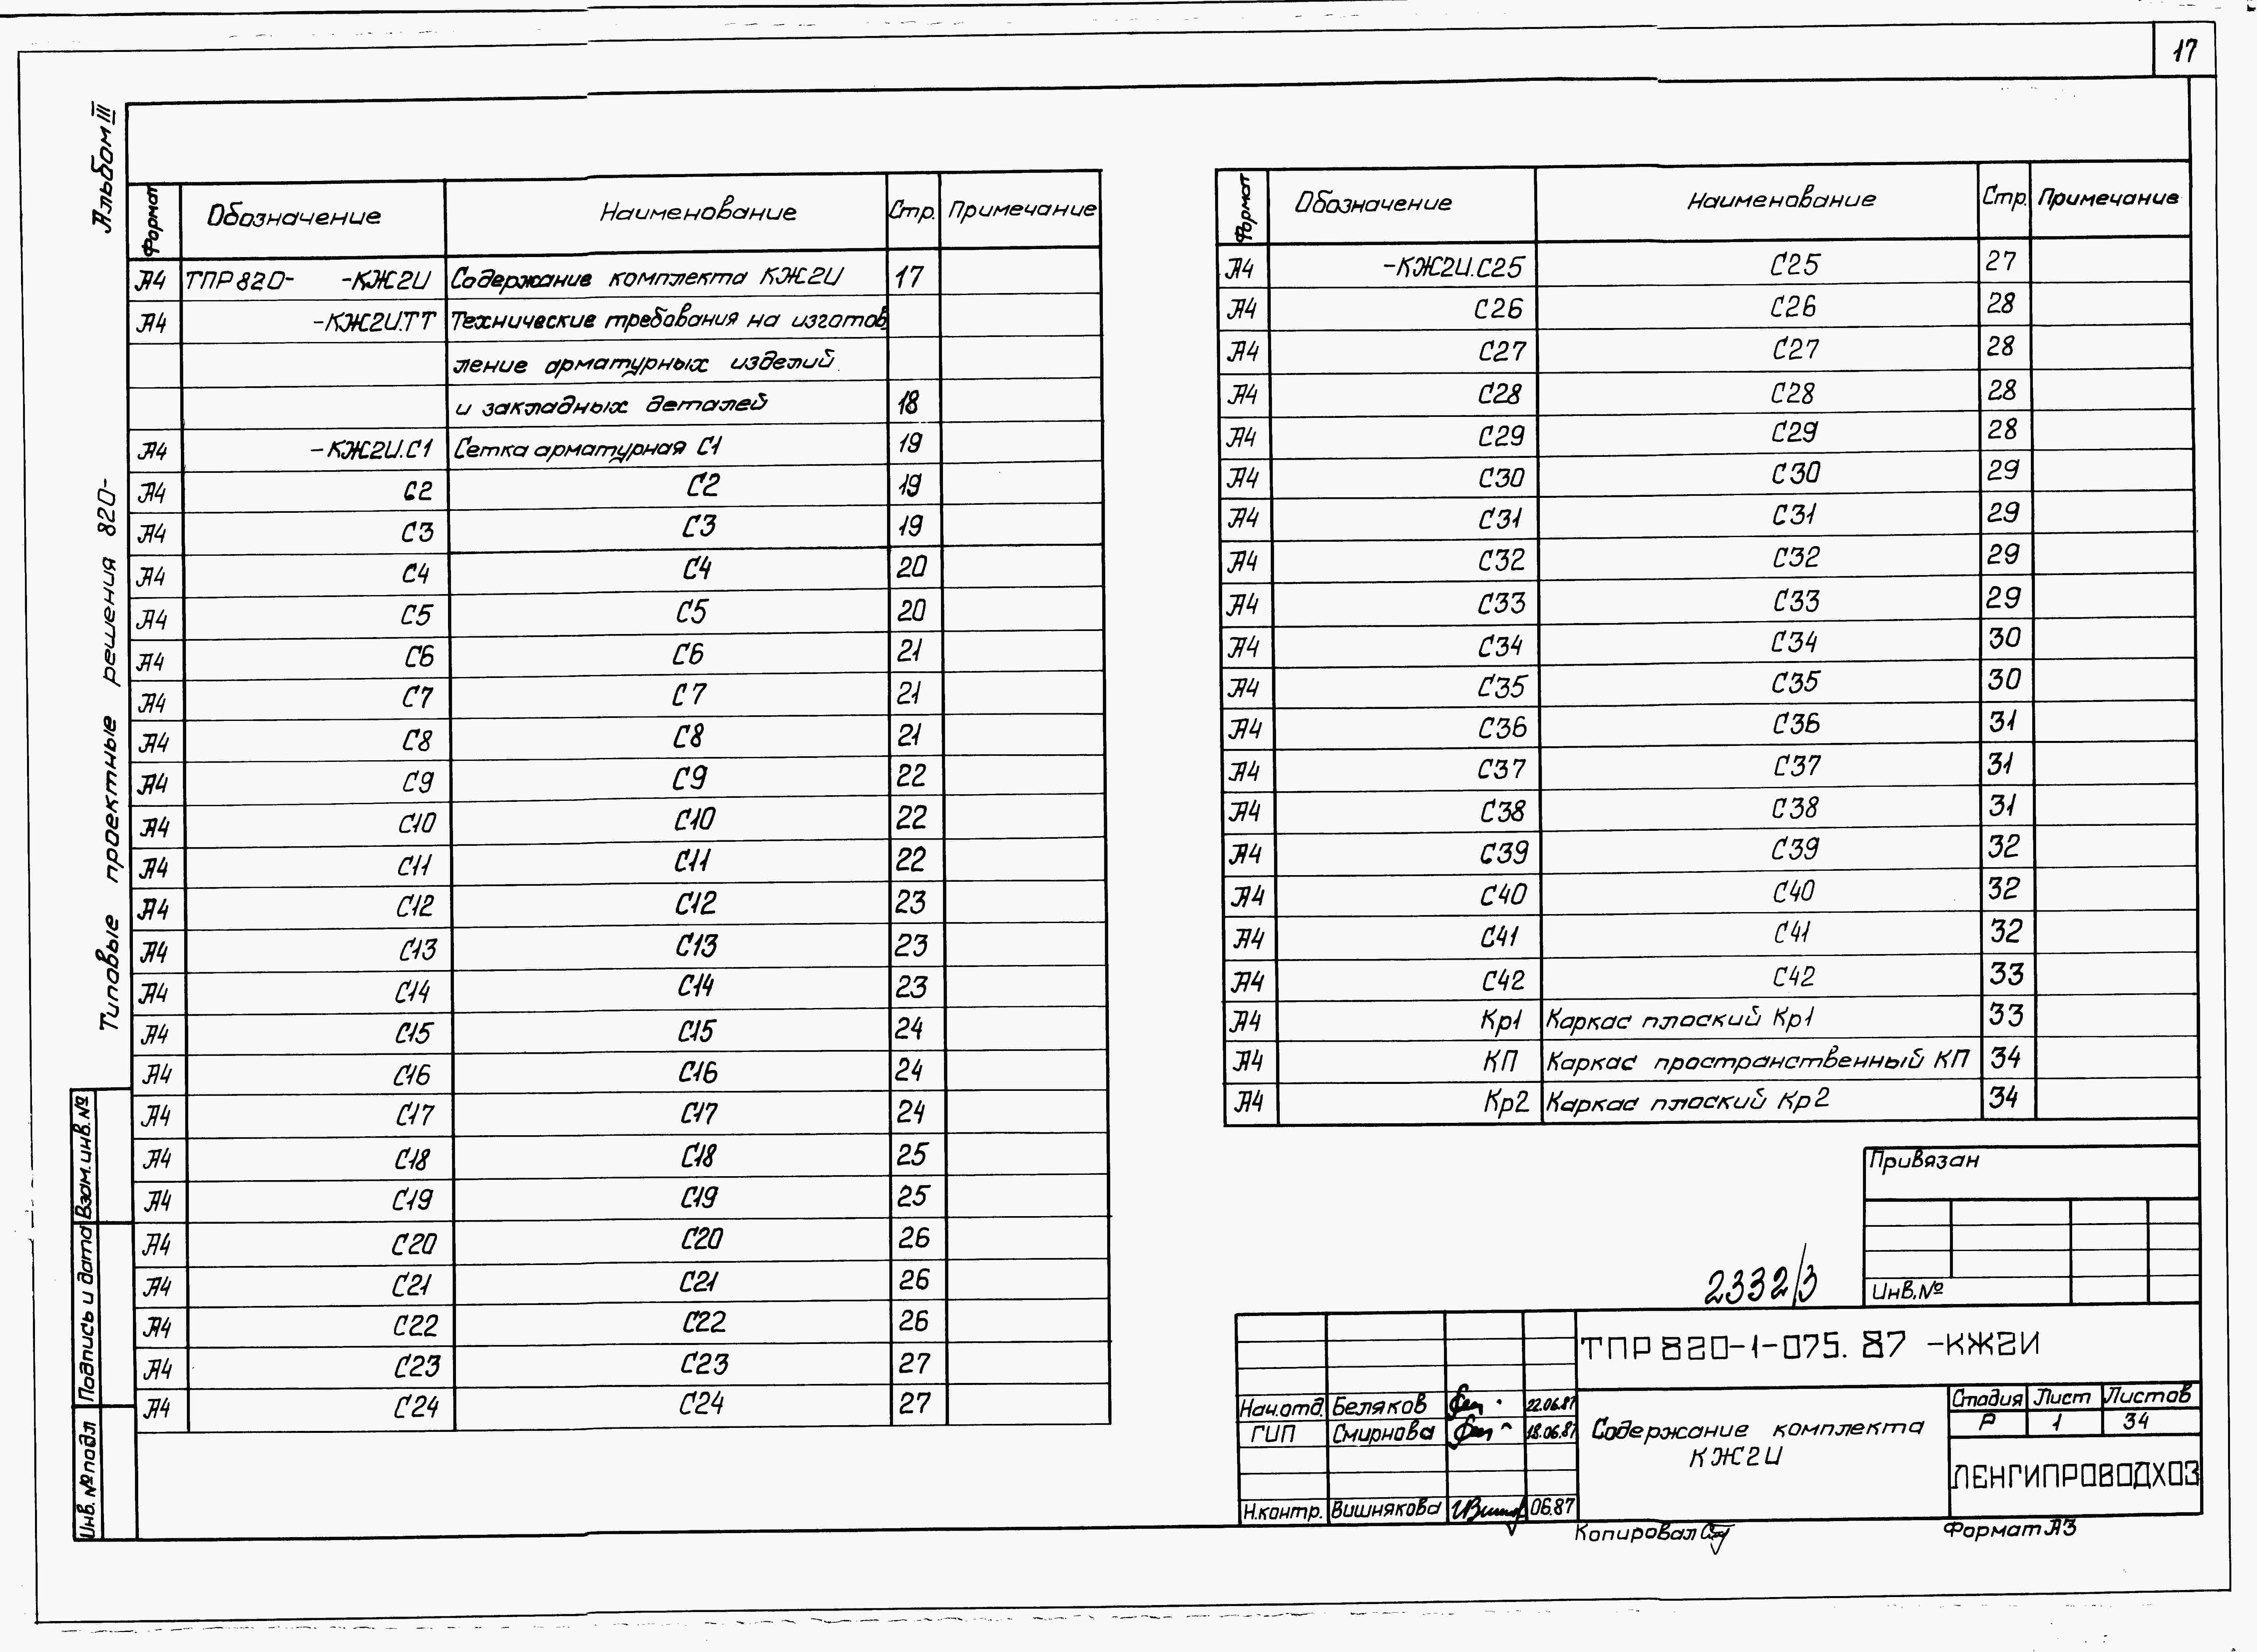 17
Альбом III
Типовые проектные решения 820-
Формат Обозначение Наименование Стр. Примечание
А4 ТПР820- -КЖ2И Содержание комплекта КЖ2И 17
А4 -КЖ2И.ТТ Технические требования на изготов-
ление арматурных изделий
и закладных деталей 18
А4 -КЖ2И.С1 Сетка арматурная С1 19
А4 С2 С2 19
А4 С3 С3 19
А4 С4 С4 20
А4 С5 С5 20
А4 С6 С6 21
А4 С7 С7 21
А4 С8 С8 21
А4 С9 С9 22
А4 С10 С10 22
А4 С11 С11 22
А4 С12 С12 23
А4 С13 С13 23
А4 С14 С14 23
А4 С15 С15 24
А4 С16 С16 24
А4 С17 С17 24
А4 С18 С18 25
А4 С19 С19 25
А4 С20 С20 26
А4 С21 С21 26
А4 С22 С22 26
А4 С23 С23 27
А4 С24 С24 27
Формат Обозначение Наименование Стр. Примечание
А4 -КЖ2И.С25 С25 27
А4 С26 С26 28
А4 С27 С27 28
А4 С28 С28 28
А4 С29 С29 28
А4 С30 С30 29
А4 С31 С31 29
А4 С32 С32 29
А4 С33 С33 29
А4 С34 С34 30
А4 С35 С35 30
А4 С36 С36 31
А4 С37 С37 31
А4 С38 С38 31
А4 С39 С39 32
А4 С40 С40 32
А4 С41 С41 32
А4 С42 С42 33
А4 Кр1 Каркас плоский Кр1 33
А4 КП Каркас пространственный КП 34
А4 Кр2 Каркас плоский Кр2 34
Привязан
Инв.№
2332/3
ТПР 820-1-075.87 -КЖ2И
Нач.отд. Беляков 22.06.87
ГИП Смирнова 18.06.87
Н.контр. Вишнякова 06.87
Содержание комплекта
КЖ2И
Стадия Лист Листов
Р 1 34
ЛЕНГИПРОВОДХОЗ
Копировал
Формат А3
Взам.инв.№
Подпись и дата
Инв.№подл